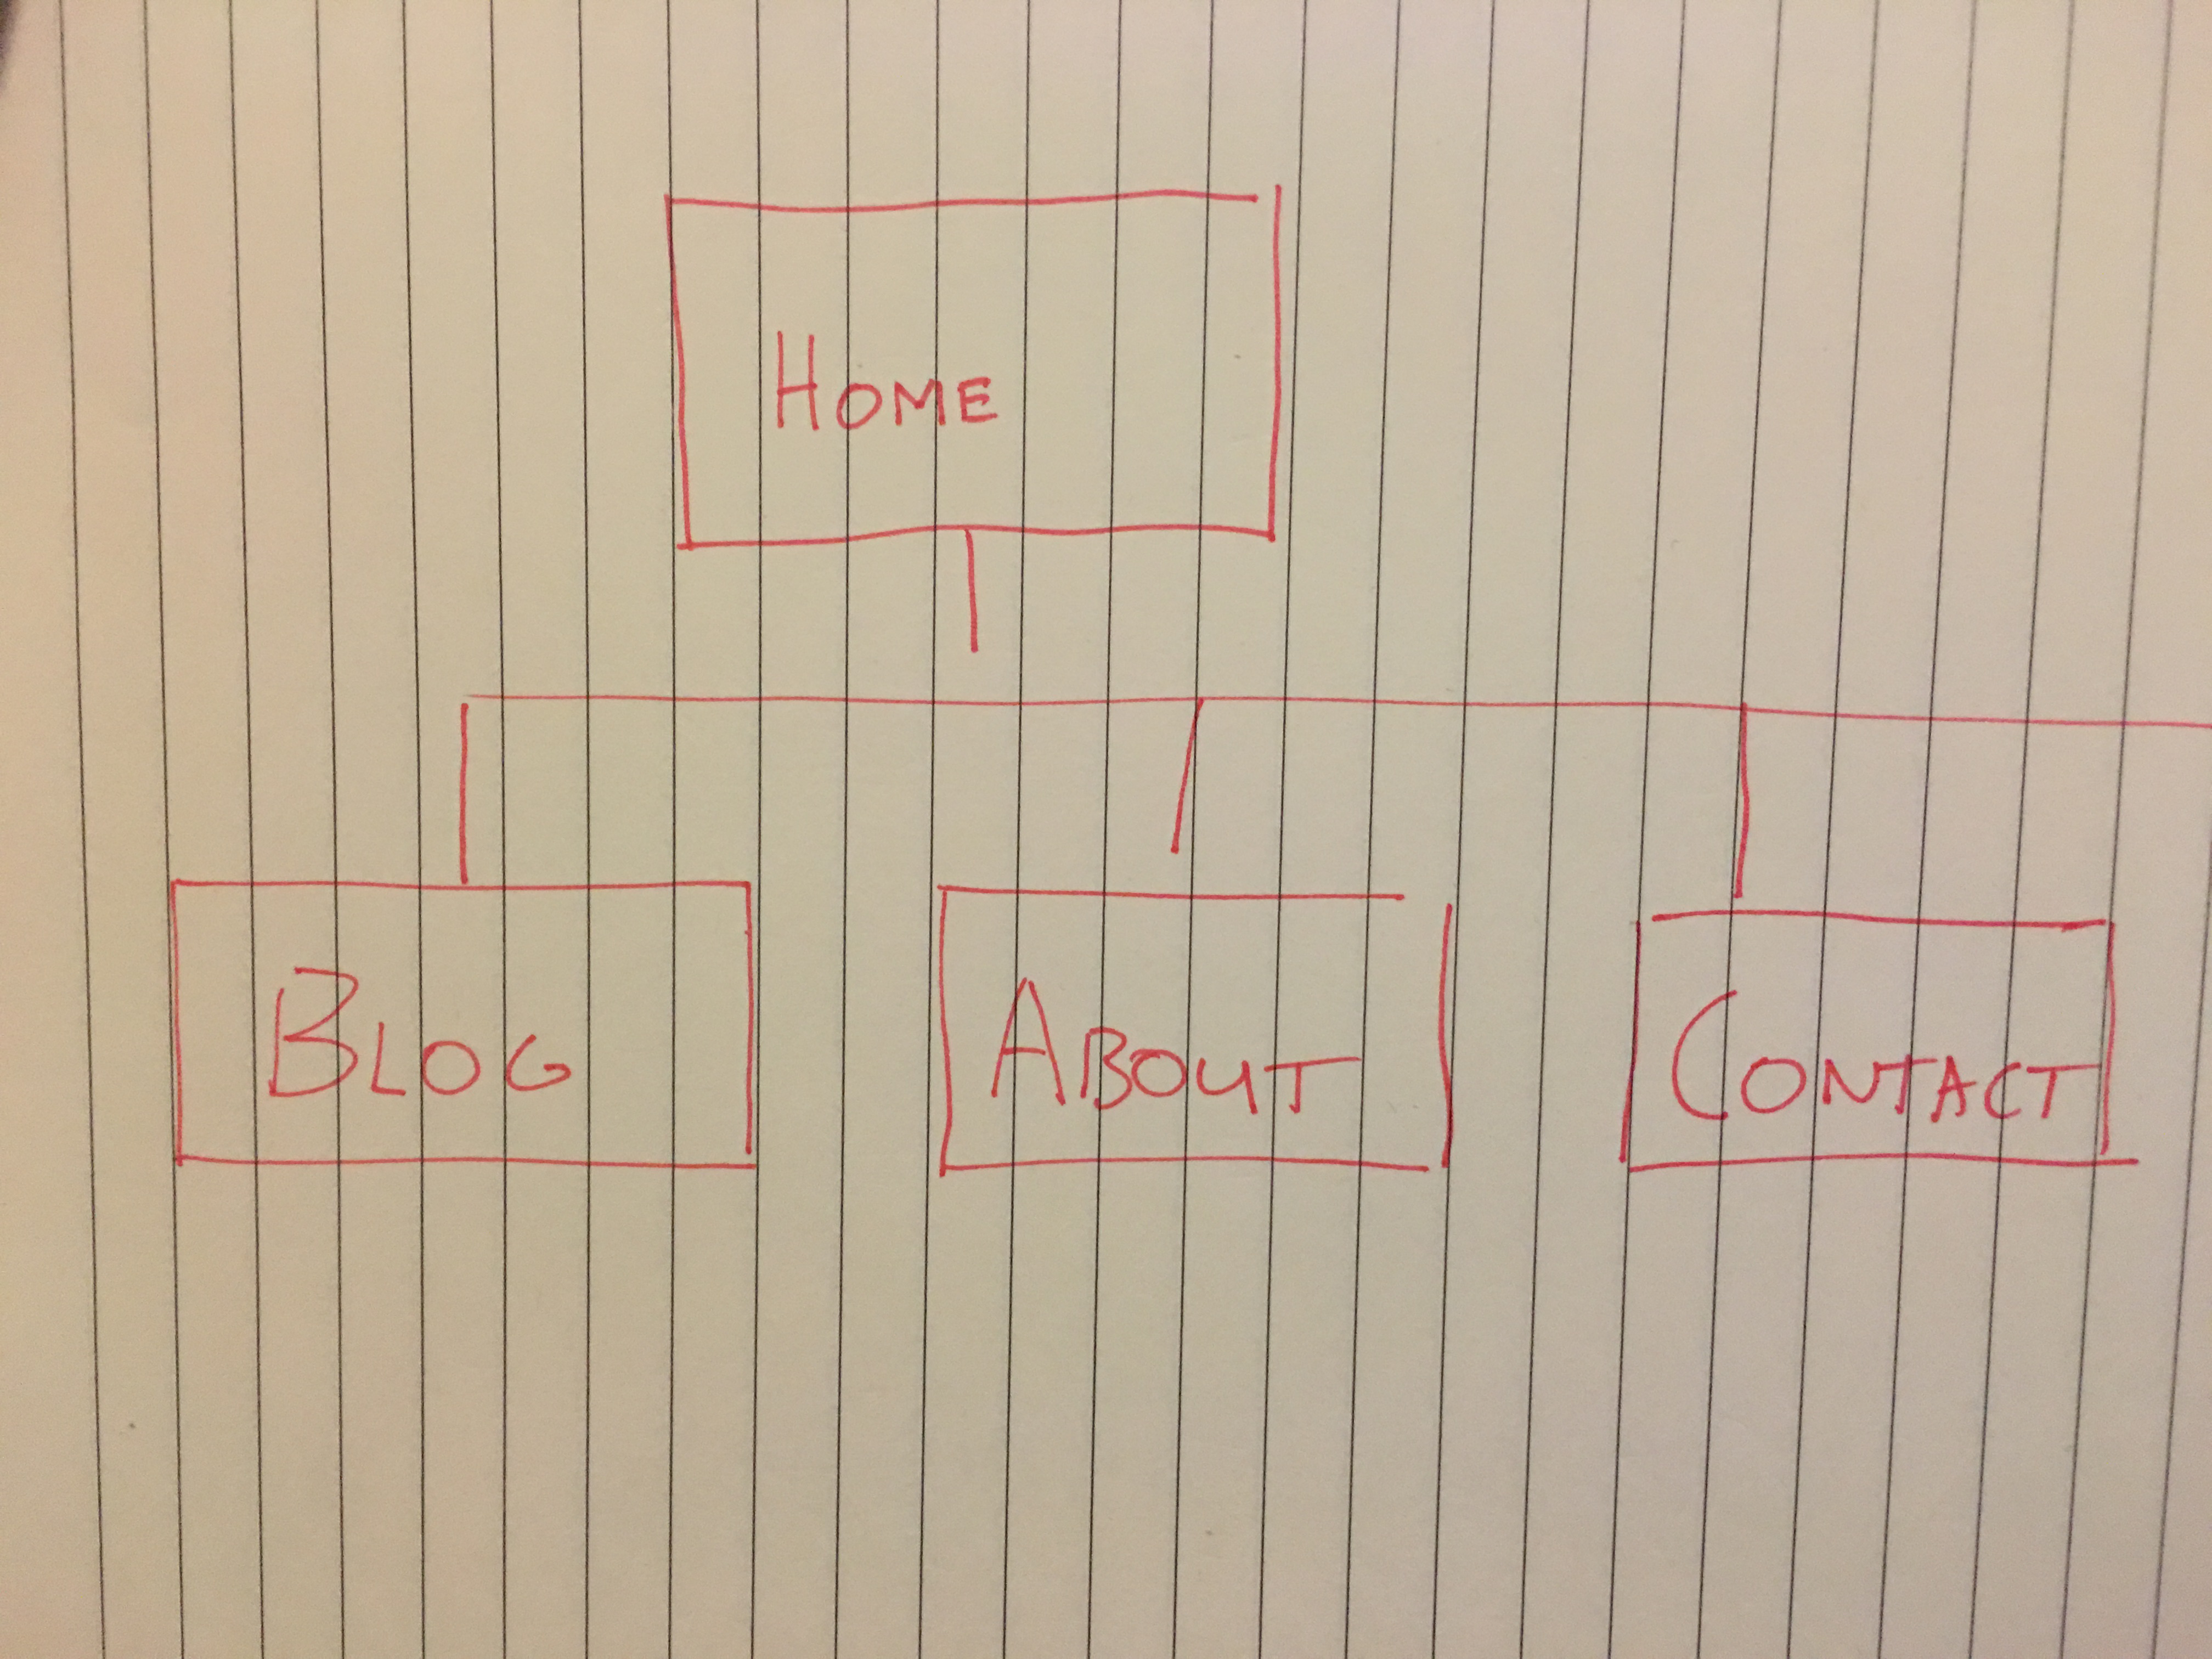 HOME
BLOG
ABOUT
CONTACT